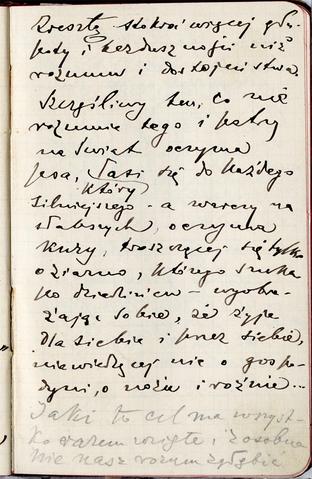 Zresztą stokroć więcej głu-
poty i bezduszności niż
rozumu i dostojeństwa.
Szczęśliwy ten, co nie
rozumie tego i patrzy
na świat oczyma
psa, łasi się do każdego
który
silniejszego - a warczy na
słabszych, oczyma
kury, troszczącej się tylko
o ziarno, którego szuka
po dziedzińcu - wyobra-
żając sobie, że żyje
dla siebie i przez siebie,
niewiedzącej nic o gospo-
dyni, o nożu i rożnie...
Jaki to cel ma wszyst-
ko razem wzięte i z osobna
nie nasz rozum zgłębić